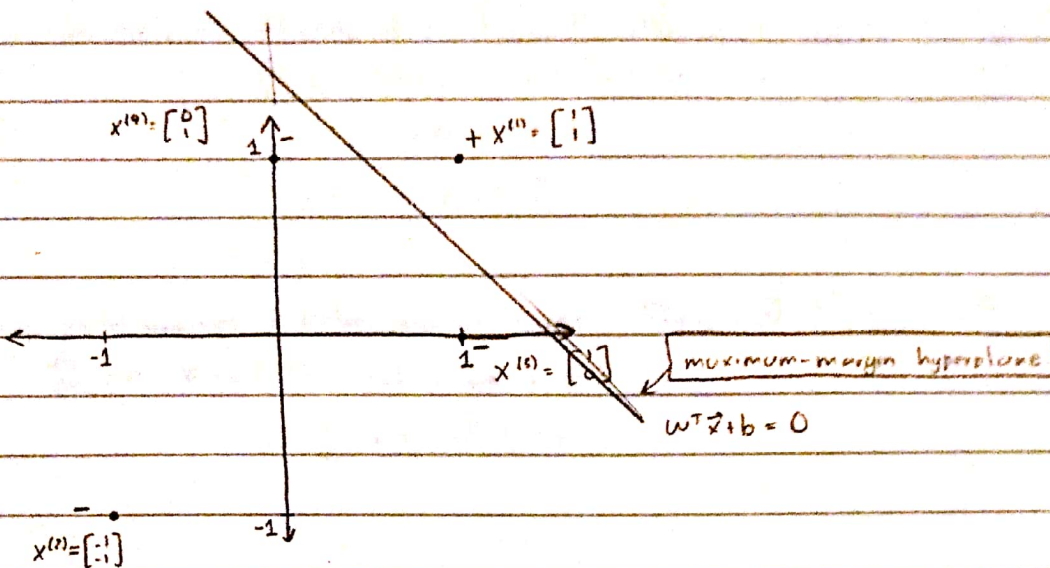 x⁽⁴⁾= [0 1]
1 -
+ x⁽¹⁾= [1 1]
-1
1 -
x⁽⁵⁾ = [1 0]
maximum-margin hyperplane
wᵀx⃗+b = 0
-
-1
x⁽²⁾=[-1 -1]